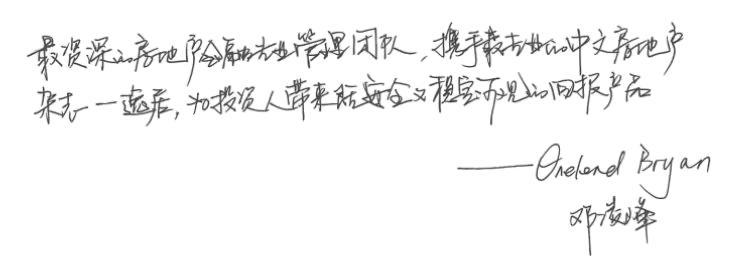 最资深的房地产金融专业管理团队，携手最专业的中文房地产
杂志—逸居，为投资人带来既安全又稳定可观的回报产品
——Onelend Bryan
邓凌峰